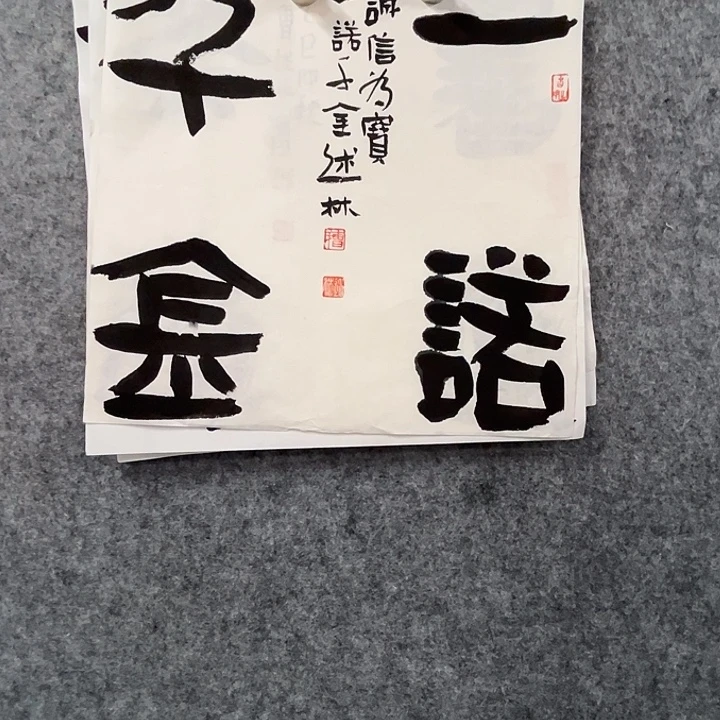 一諾
千金
誠信為寶一
諾千金述林